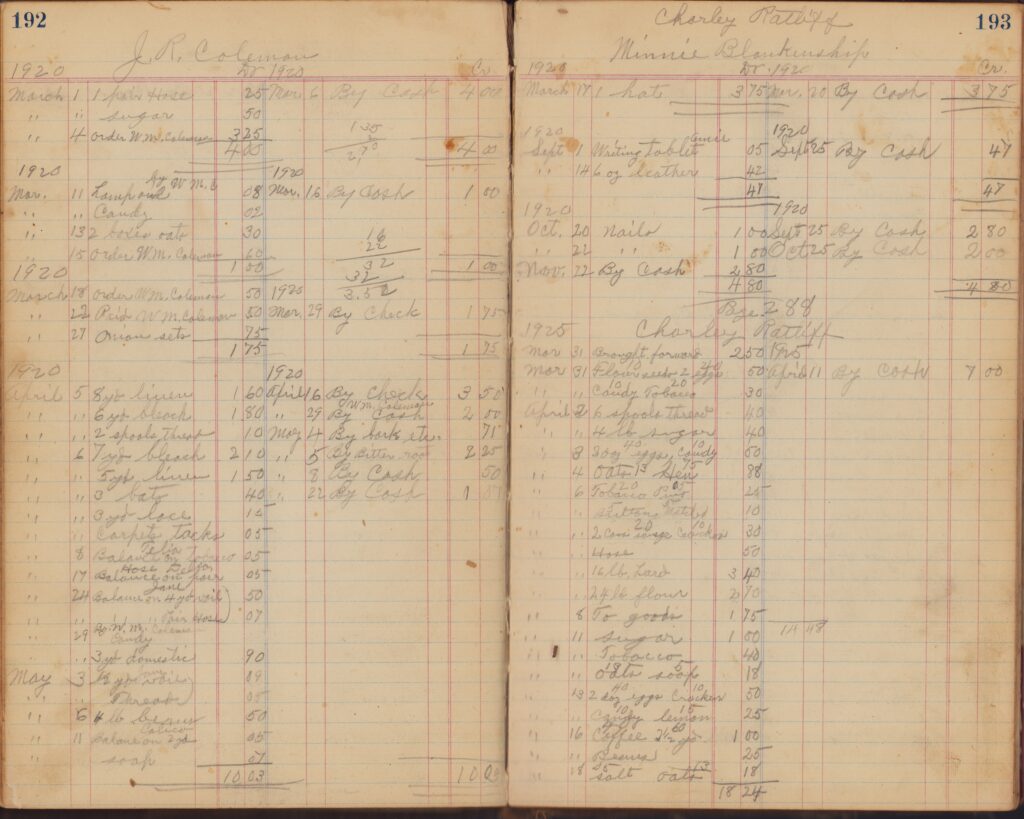 192
J. R. Coleman
1920 Dr 1920 Cr.
March 1 1 pair Hose 25 Mar 6 By Cash 4 00
" " sugar 50
" 4 order W.M. Coleman 3 25
4 00 4 00
1920 by W M C 1920
Mar. 11 Lamp oil 08 Mar. 16 By Cash 1 00
" " Candy 02
" 13 2 boxes oats 30
" 15 order W.M. Coleman 60
1 00 1 00
1920
March 18 order W.M. Coleman 50 1920
" 22 Paid W.M. Coleman 50 Mar. 29 By Check 1 75
" 27 Onion sets 75
1 75 1 75
1920 1920
April 5 8 yd linen 1 60 April 16 By Check 3 50
" " 6 yd bleach 1 80 " 29 By Cash W.M. Coleman 2 00
" " 2 spools thread 10 May 4 By bark etc. 71
" 6 7 yd bleach 2 10 " 5 By Bitter root 2 25
" " 5 yd linen 1 50 " 8 By Cash 50
" " 3 bats 40 " 22 By Cash 1 07
" " 3 yd lace 15
" " Carpet tacks 05
" 8 Balance on Tobacco 05
" 17 Balance on pair Hose 05
" 24 Balance on 4 yd voil 50
" " " " Pair Hose 07
" 29 By W.M. Coleman Candy
" " 3 yd domestic 90
May 3 1/2 yd voile 09
" " Thread 05
" 6 4 lb beans 50
" 11 Balance on 2 yd Calico 05
" " soap 07
10 03 10 03
Charley Ratliff
193
Minnie Blankenship
1920 Dr. 1920 Cr.
March 17 1 hat 3 75 Mar. 20 By Cash 3 75
1920 1920
Sept 1 Writing tablet 05 Sept 25 By Cash 47
" 14 6 oz leather 42
47 47
1920 1920
Oct. 20 Nails 1 00 Sept 25 By Cash 2 80
" 22 " " 1 00 Oct 25 By Cash 2 00
Nov. 22 By Cash 2 80
4 80 4 80
Page 288
1925 Charley Ratliff
Mar 31 Brought forward 2 50 1925
Mar 31 Flour seeds 2 eggs 50 April 11 By Cash 7 00
" " Candy 10 Tobacco 20 30
April 2 6 spools thread 40
" " 4 lb sugar 40
" 3 3 doz eggs, 40 Candy 10 50
" 4 Oats 13 Hen 75 88
" 6 Tobacco 20 25
" " 10
" " 2 cans 20 Cracker 10 30
" " Hose 50
" " 16 lb Lard 3 40
" " 24 lb flour 2 70
" 8 To goods 1 75
" 11 sugar 1 00 14 48
" " Tobacco 40
" " Oats 13 soap 5 18
" 13 2 doz eggs 40 Cracker 10 50
" " Candy 10 lemon 15 25
" 16 Coffee 1 00
" " Beans 25
" 18 salt 5 oats 13 18
18 24